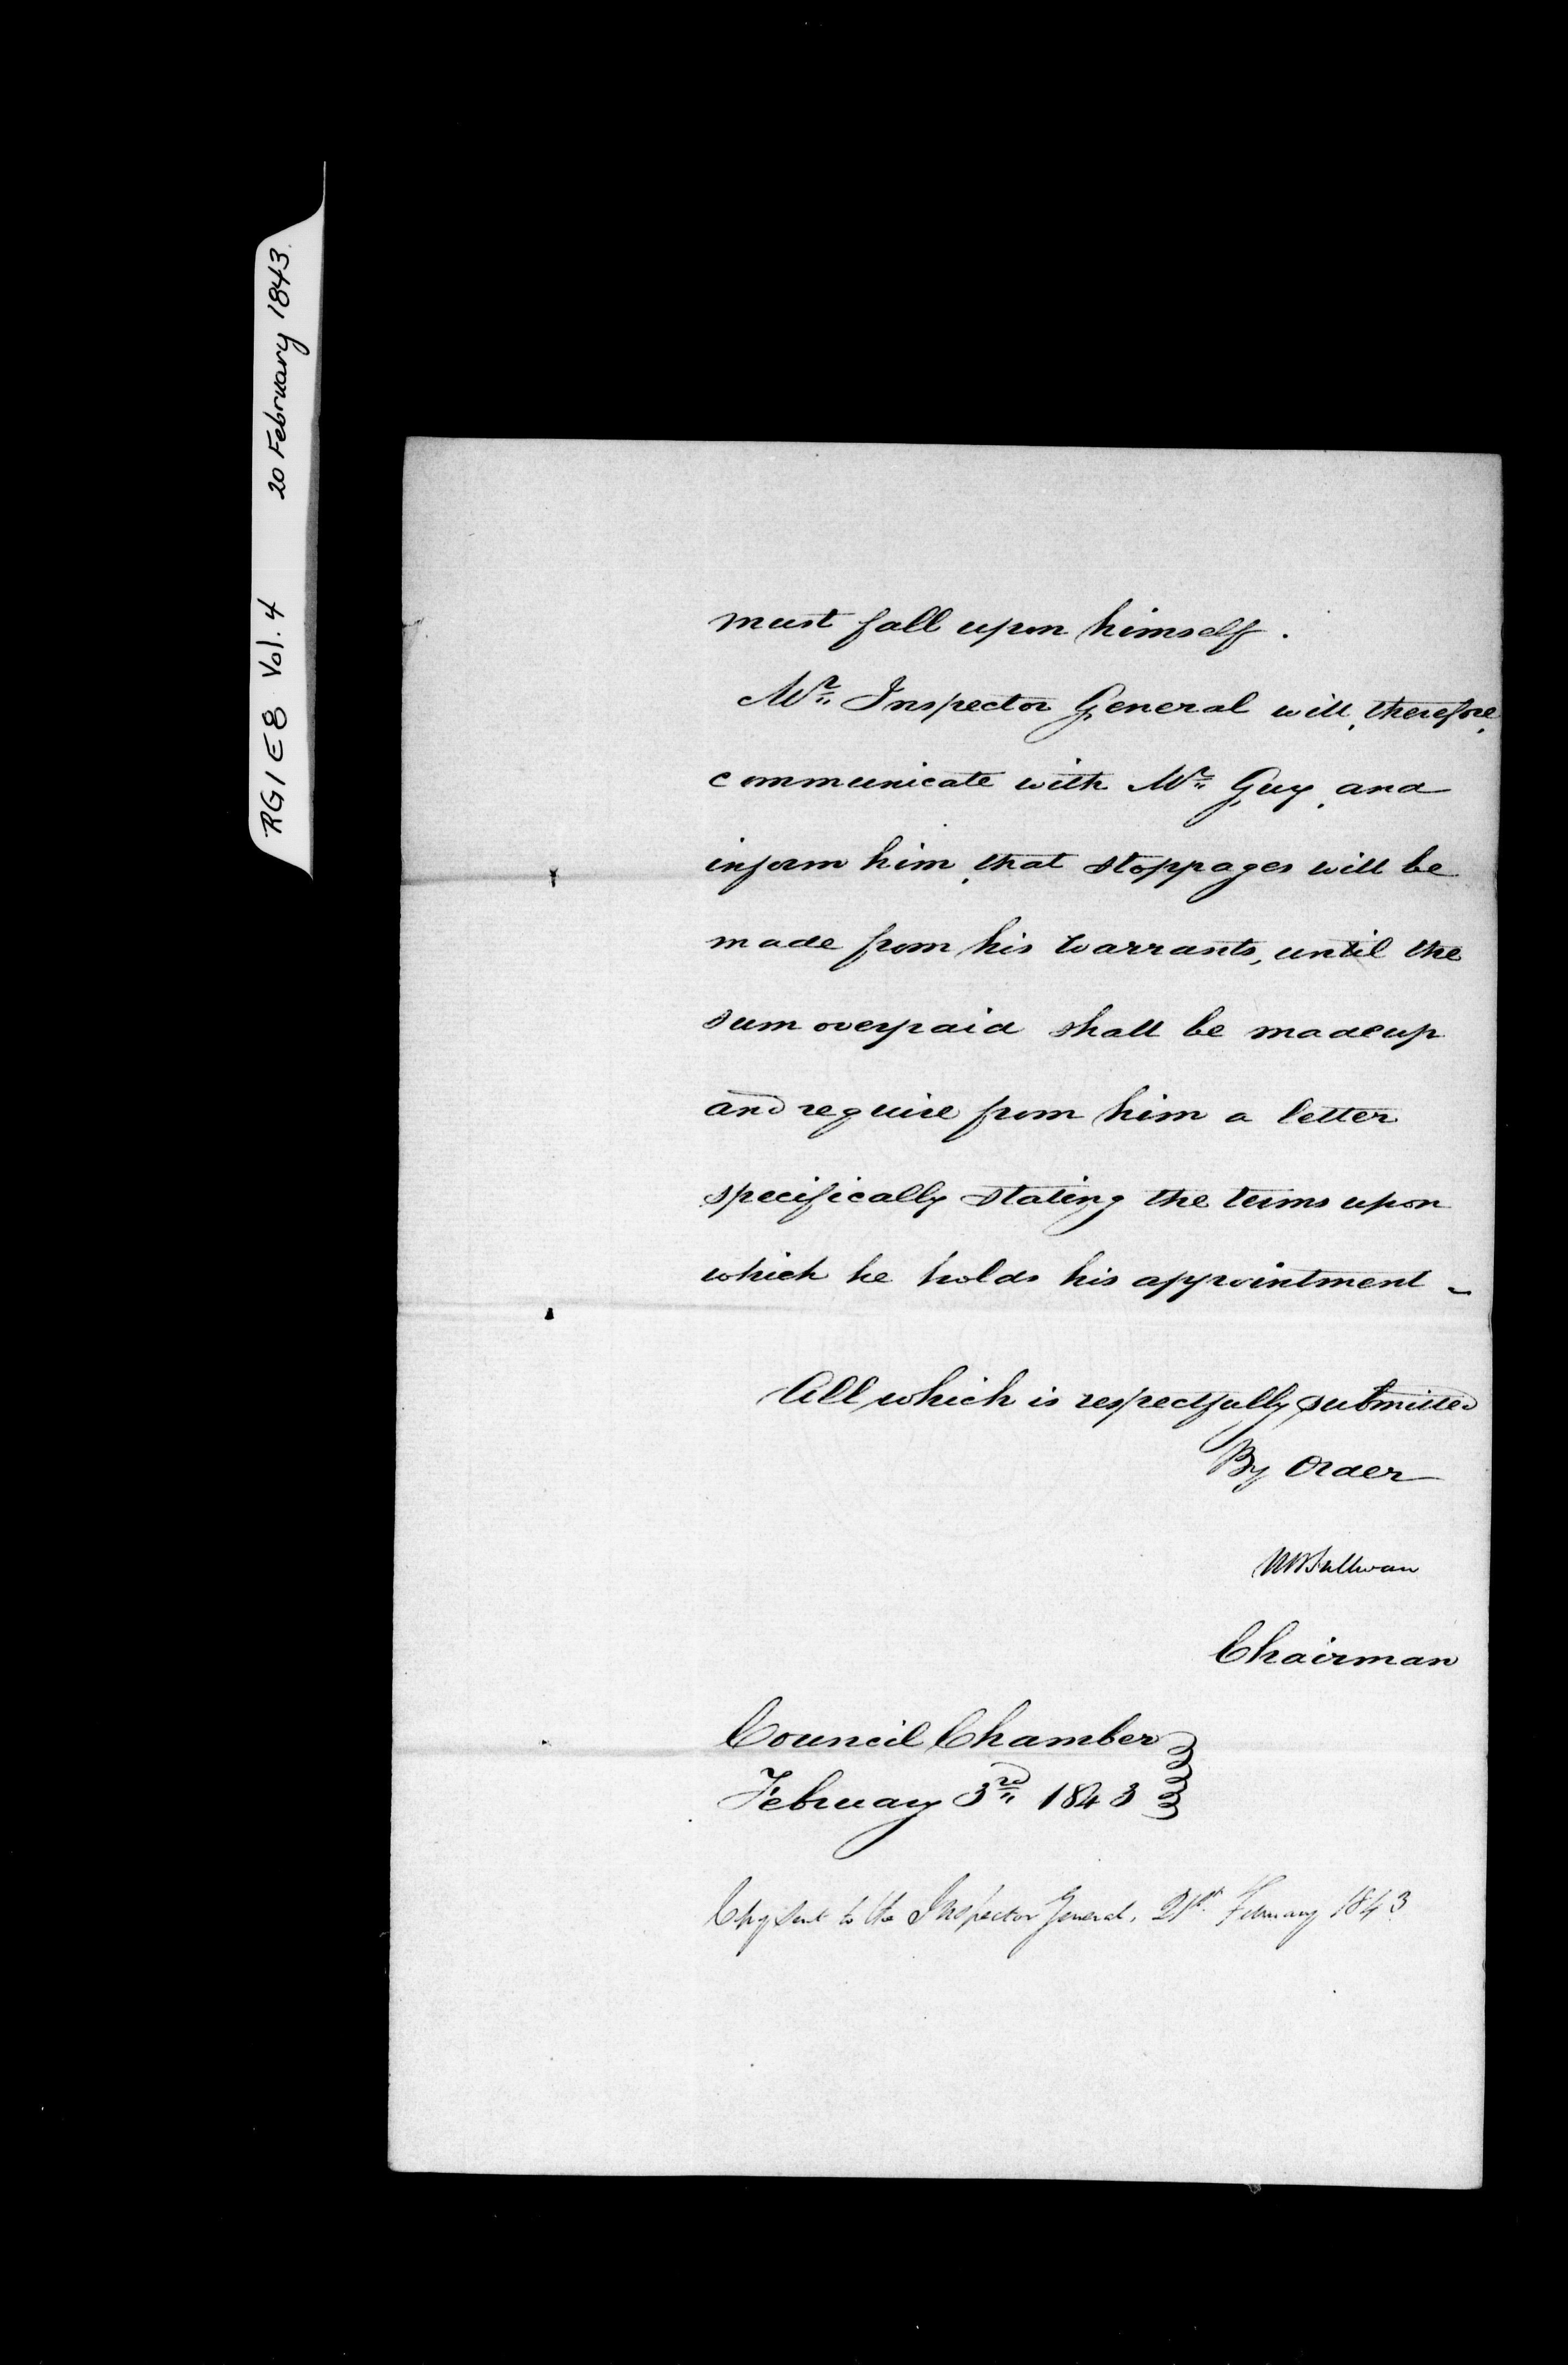 RG1 E8 Vol. 4 20 February 1843.
must fall upon himself.
Mr. Inspector General will, therefore,
communicate with Mr. Guy, and
inform him, that stoppages will be
made from his Warrants, until the
sum overpaid shall be made up
and require from him a letter
specifically stating the terms upon
which he holds his appointment –
All which is respectfully submitted
By Order
RB Sullivan
Chairman
Council Chamber
February 3rd 1843
Copy sent to the Inspector General, 21st February 1843